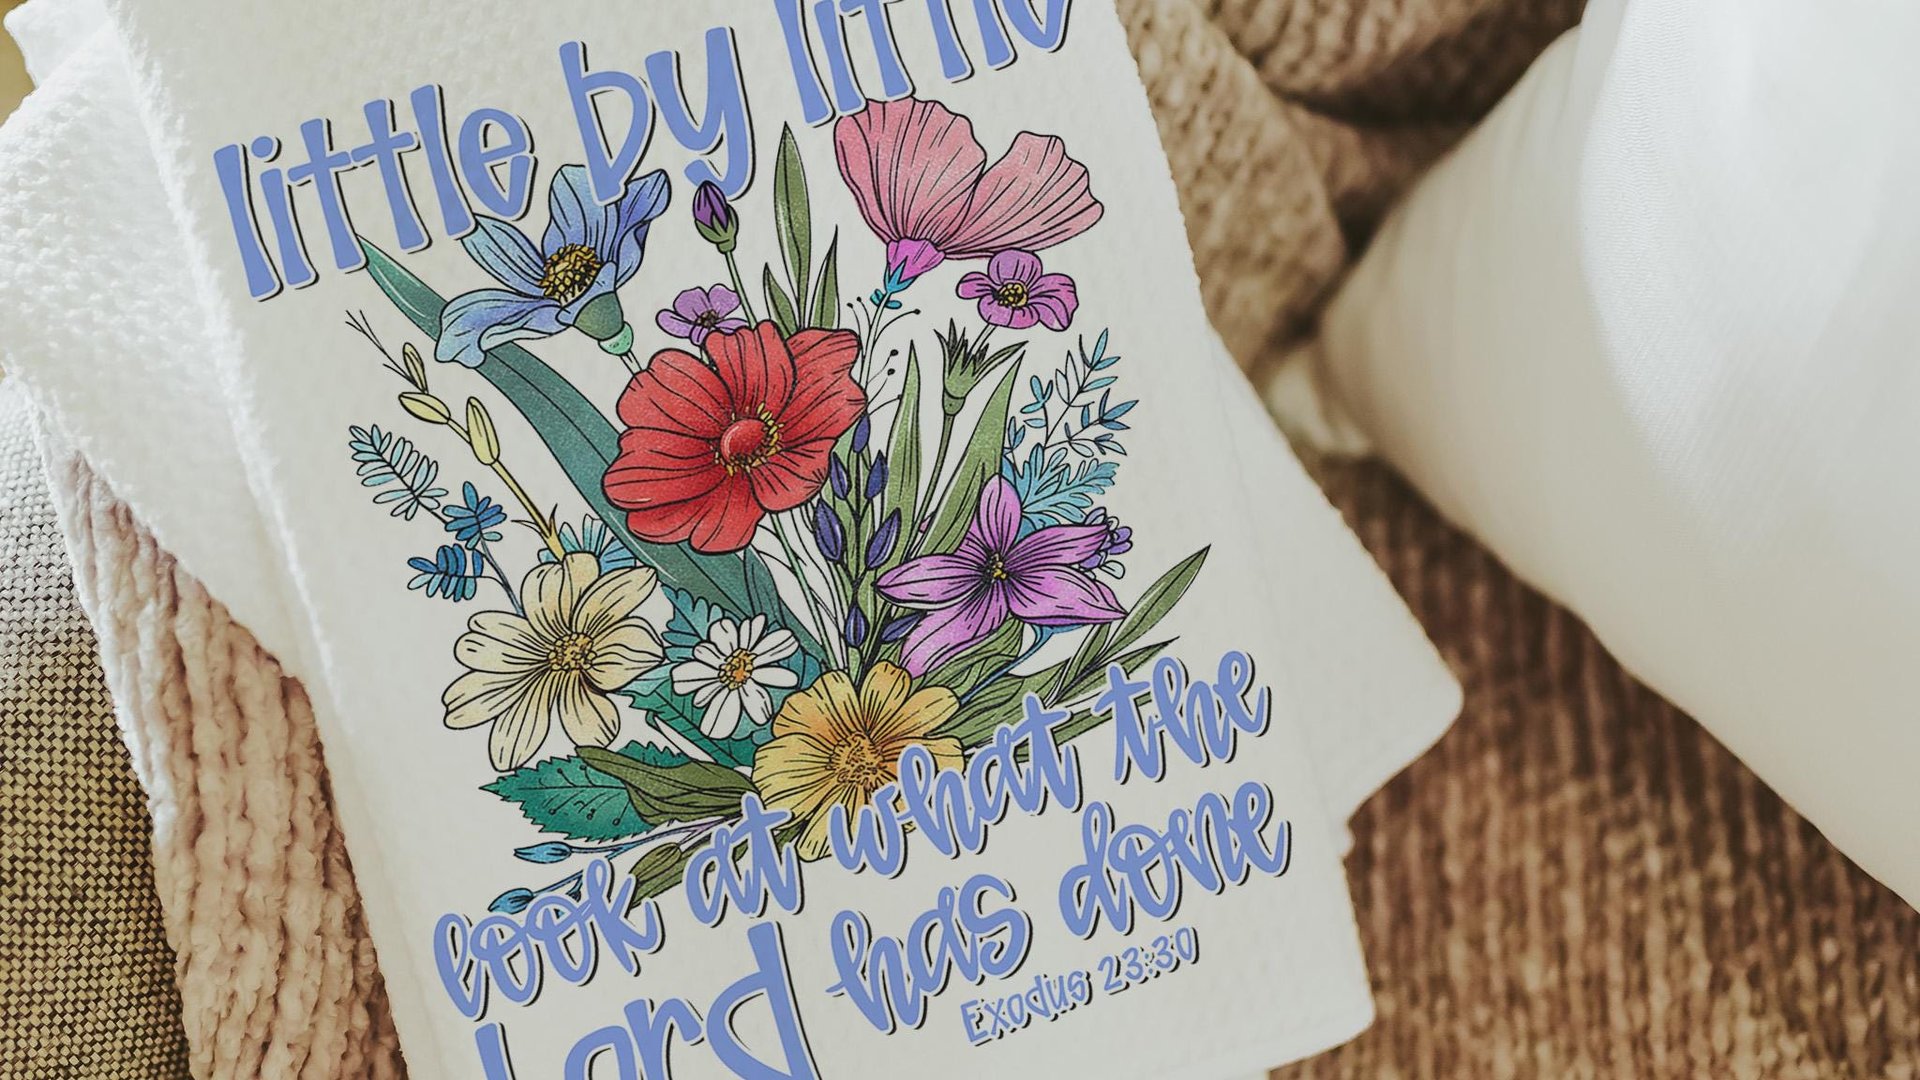 little by little
look at what the
Lord has done
Exodus 23:30